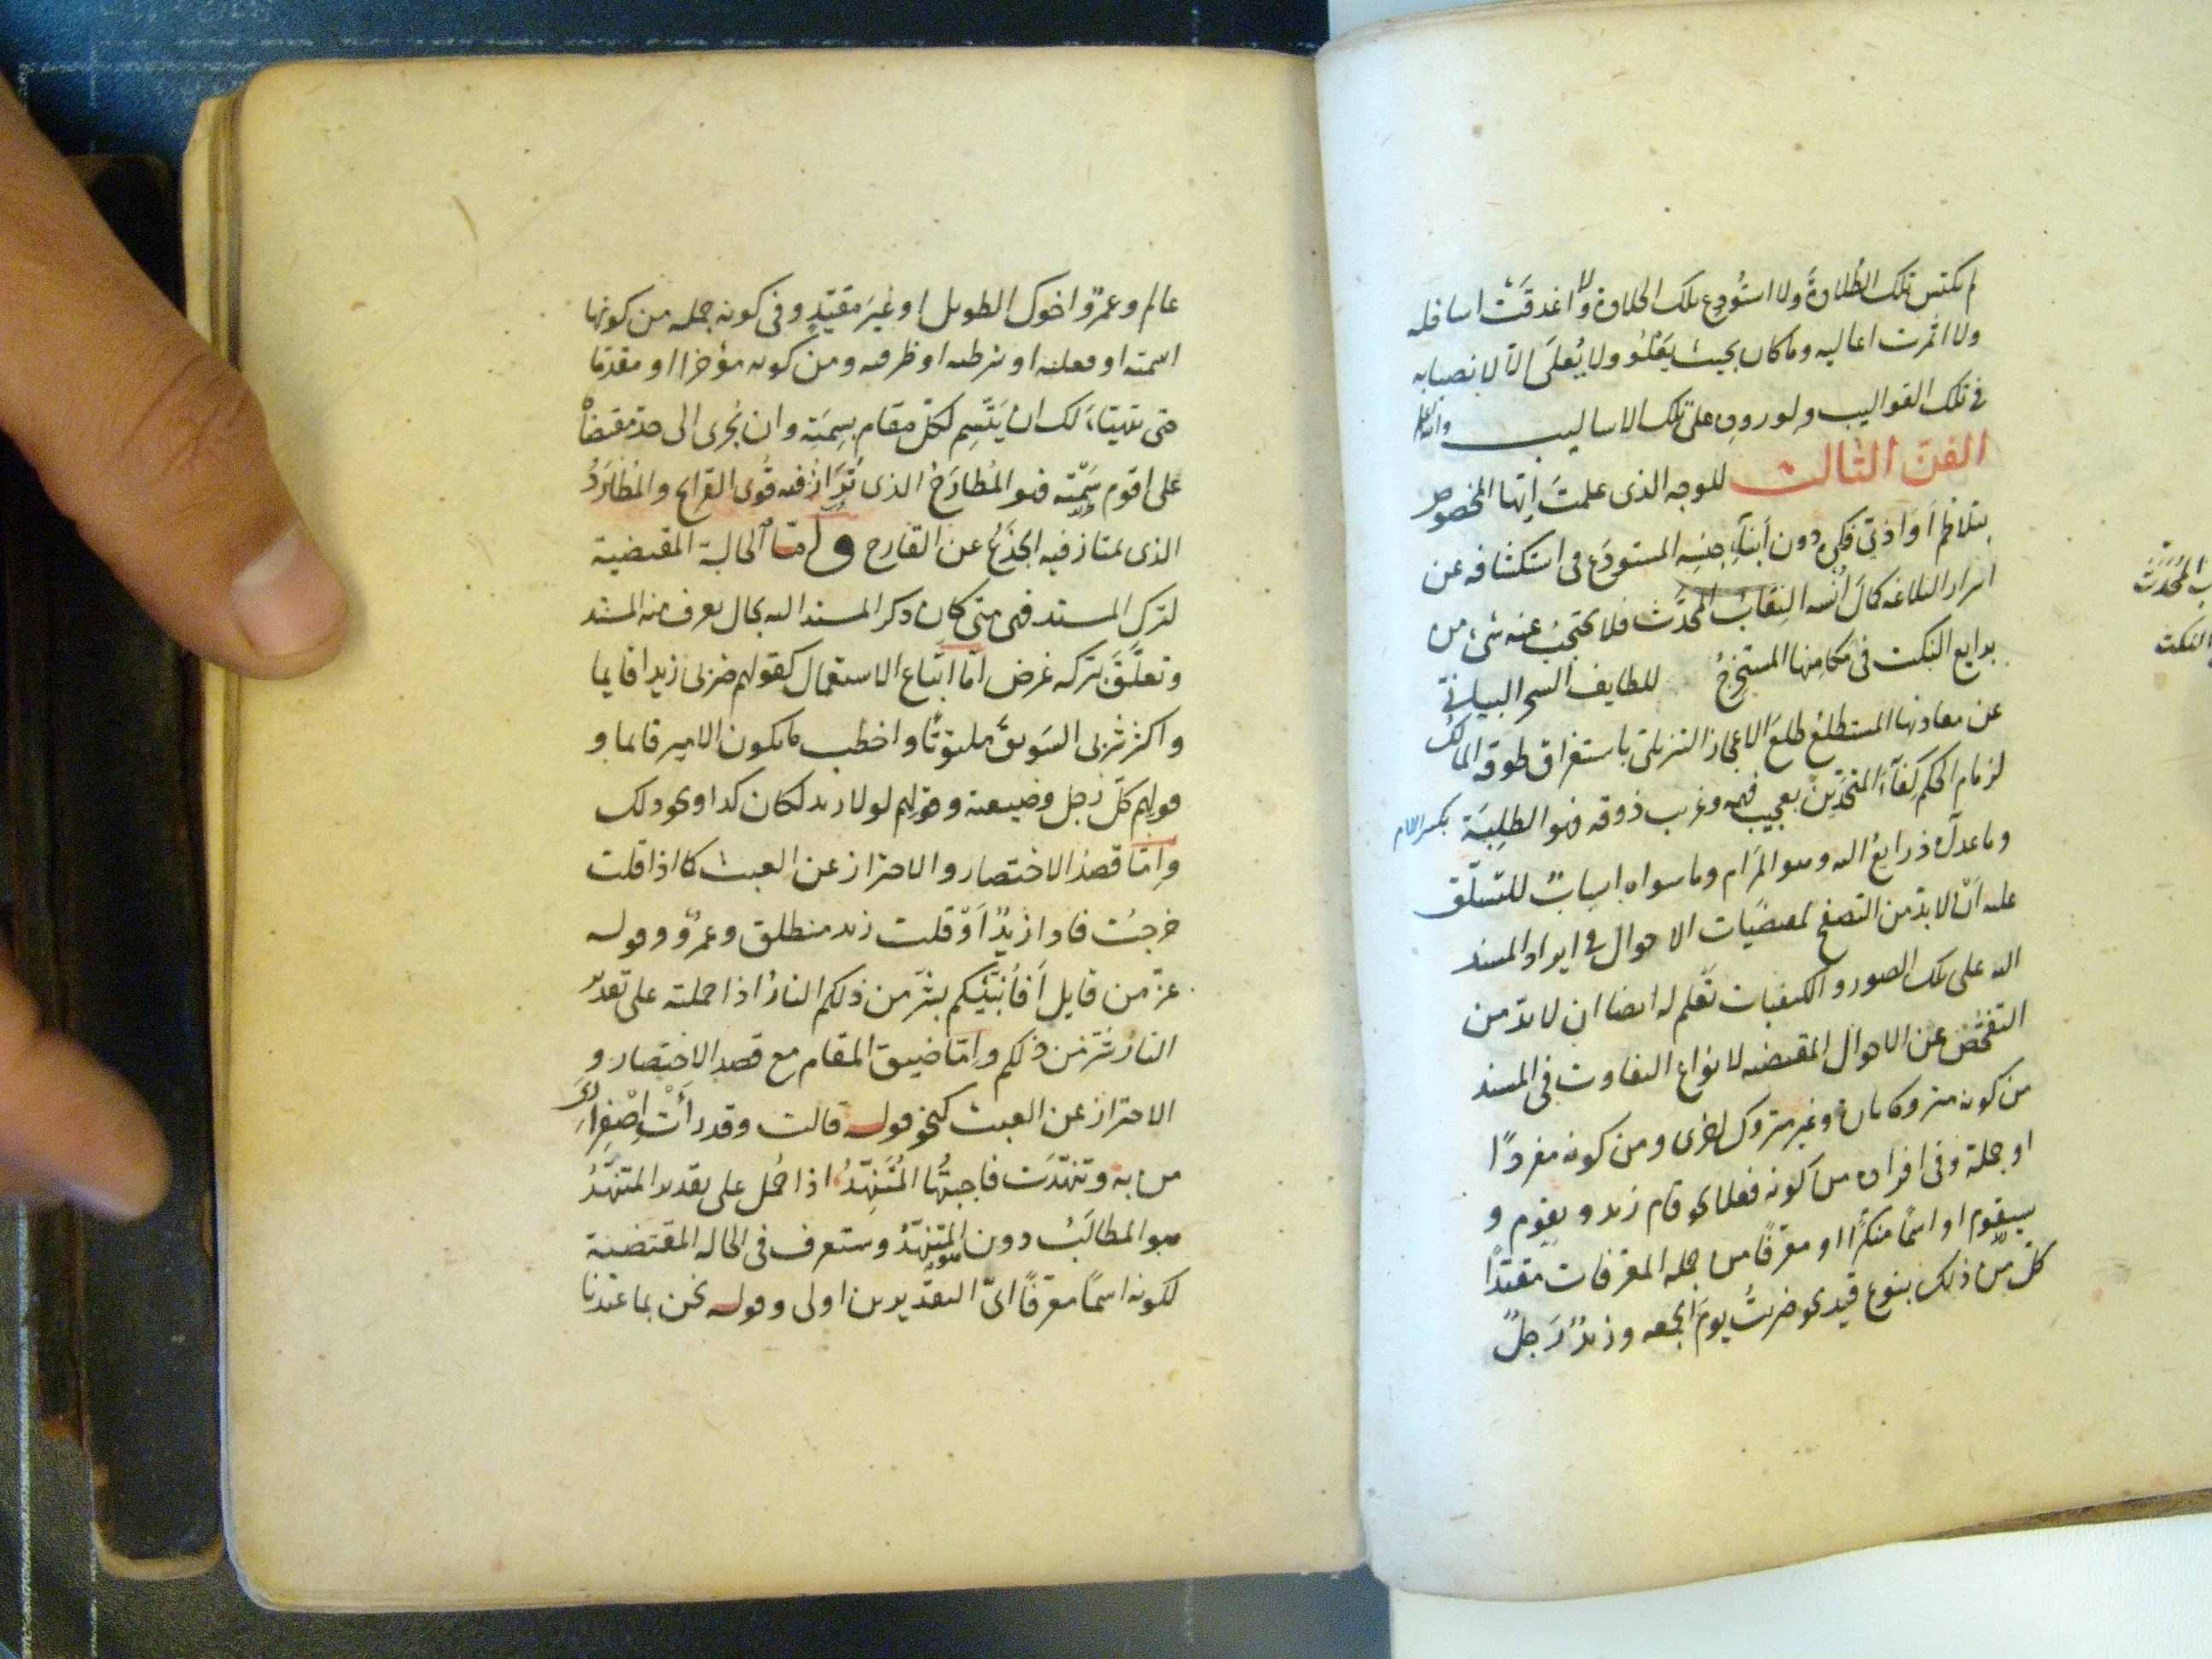 لم يكتس تلك الطُلاوةَ ولا استُودِع تلك الحلاوة ولا اغدقَتْ اسافله
ولا اثمرت اعاليه وما كان بحيث يَعْلُو ولا يُعلَى الّا لانصبابه
في تلك القواليب ولوروده على تلك الاساليب والله اعلم
الفنّ الثالث للوجه الذى علمتَ ايّها المخصوص
بتلاطم اَوَاذيّ فكره دون اَبنآءِ جنسِه المستودَع فى استكشافه عن
اسرار البلاغه كمالَ اُنْسه النِقابُ المحدَّث فلا يحتجبُ عنه شى من
بدايع النكت فى مكامِنها المستخرِجُ للطايف السحر البيانيّ
عن معادنها المستطلِعُ طِلْعَ الاعجاز التنزيلى باستغراق طوقه المالكُ
لزمام الحكم كِفآءَ المتحَدِّينَ بعجيب فهمه وغريب ذوقه فهو الطلِبَة بكسر اللام
وما عداه ذرايعُ اليه وهو المرَام وما سواه اسبابٌ للتسلّق
عليه اَنْ لا بدّ من التصفح لمقتضَيات الاحوال فى ايراد المسند
اليه على تلك الصور والكيفيات تعلم له ايضا ان لا بدّ من
التفحّص عن الاحوال المقتضيه لانواع التفاوت فى المسند
من كونه متروكا تارة وغير متروك اخرى ومن كونه مفردًا
او جملة وفى افراده من كونه فعلا نحو قام زيد ويقوم و
سيقوم او اسمًا منكَّرًا او معرّفًا من جمله المعرّفات مقيّدًا
كلّ من ذلك بنوع قيدٍ نحو ضربتُ يومَ الجمعه وزيدٌ رَجلٌ
ب المُحَدَّث
النكت
عالم وعمرٌو اخوك الطويل او غيرَ مقيّدٍ وفى كونه جمله من كونها
اسميّه او فعليّه او شرطيه او ظرفيه ومن كونه مؤخرا او مقدّما
حتى يتهيّاَ لك ان يَتَّسِم لكلّ مقام بسِمَتِه وان يُجرى الى حدّ مقتضاه
على اقوم سَمْته فهو المُطارَحُ الذى تُرَازُ فيه قُوى القرايح والمُطارَدُ
الذى يمتاز فيه الجذَعُ عن القارح وامّا الحالية المقتضية
لترك المسند فهى متى كان ذكر المسند اليه بحال يعرف منه المسند
وتعلَّقَ بتركه غرض امّا اتباع الاستعمال كقولهم ضربى زيدا قايما
واكثر شربى السَويقَ ملتوتًا واخطب ما يكون الامير قايما و
قولِهم كلّ رَجل وضيعته وقولِهم لولا زيد لكان كذا ونحو ذلك
وامّا قصدُ الاختصار والاحتراز عن العبث كما اذا قلت
خرجتُ فاذا زيدٌ اَوْ قلت زيد منطلق وعمرٌو وقوله
عزّ من قايل اَفَأُنَبِّئُكم بشرّ من ذلكم النارُ اذا حملته على تقدير
النارُ شرٌّ من ذلكم وامّا ضيق المقام مع قصد الاختصار و
الاحتراز عن العبث كنحو قوله قالت وقد رأت اصْفِرَارى
مَن به وتنهّدَت فاجبتُها المُتَنَهِّدُ اذا حُمل على تقدير المتنهّدُ
هو المطالَبُ دون هو المتنهّدُ وستعرف فى الحاله المقتضية
لكونه اسمًا معرّفًا اىّ التقديرين اولى وقوله نحن بما عندنا